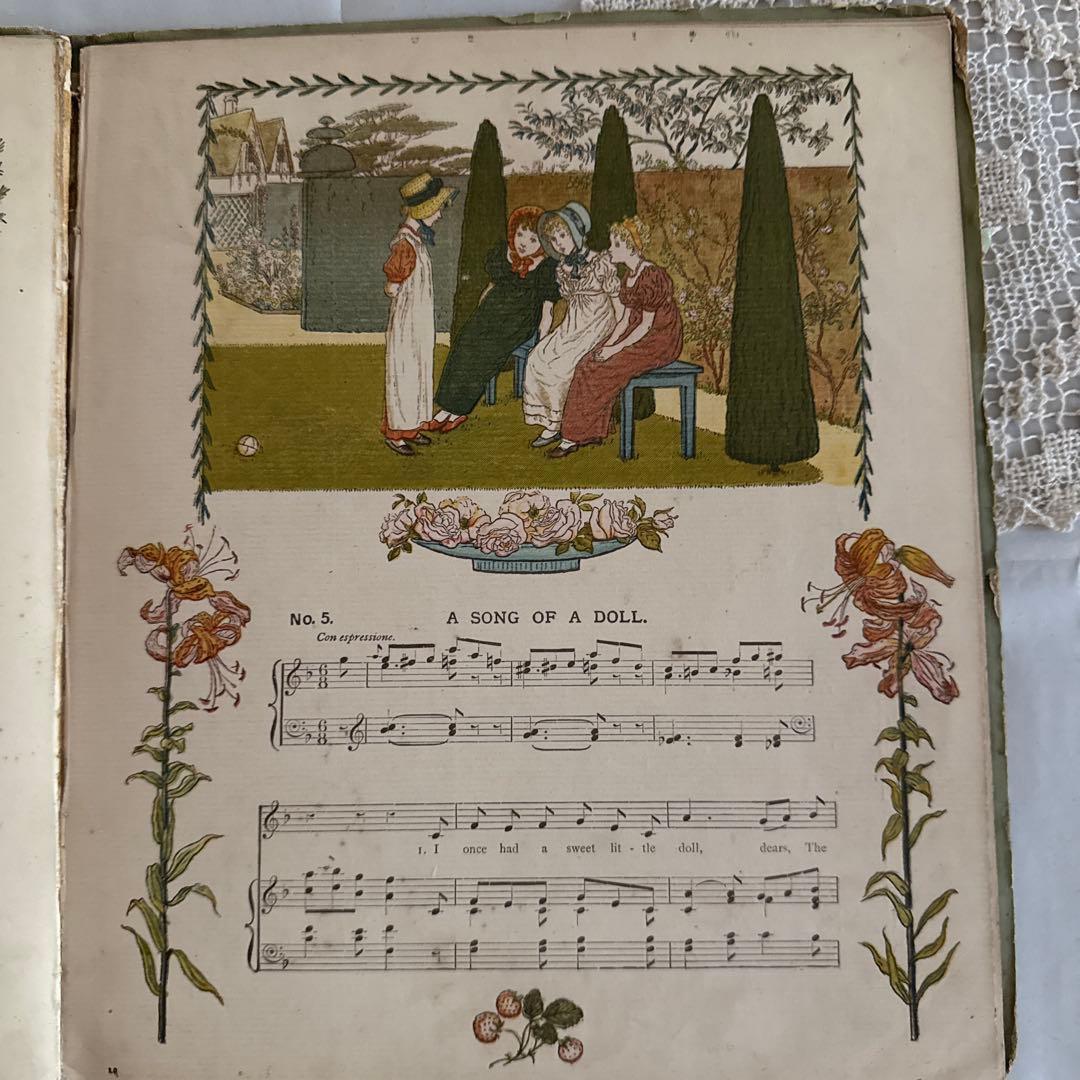 No. 5. A SONG OF A DOLL.
Con espressione.
1. I once had a sweet lit - tle doll, dears, The